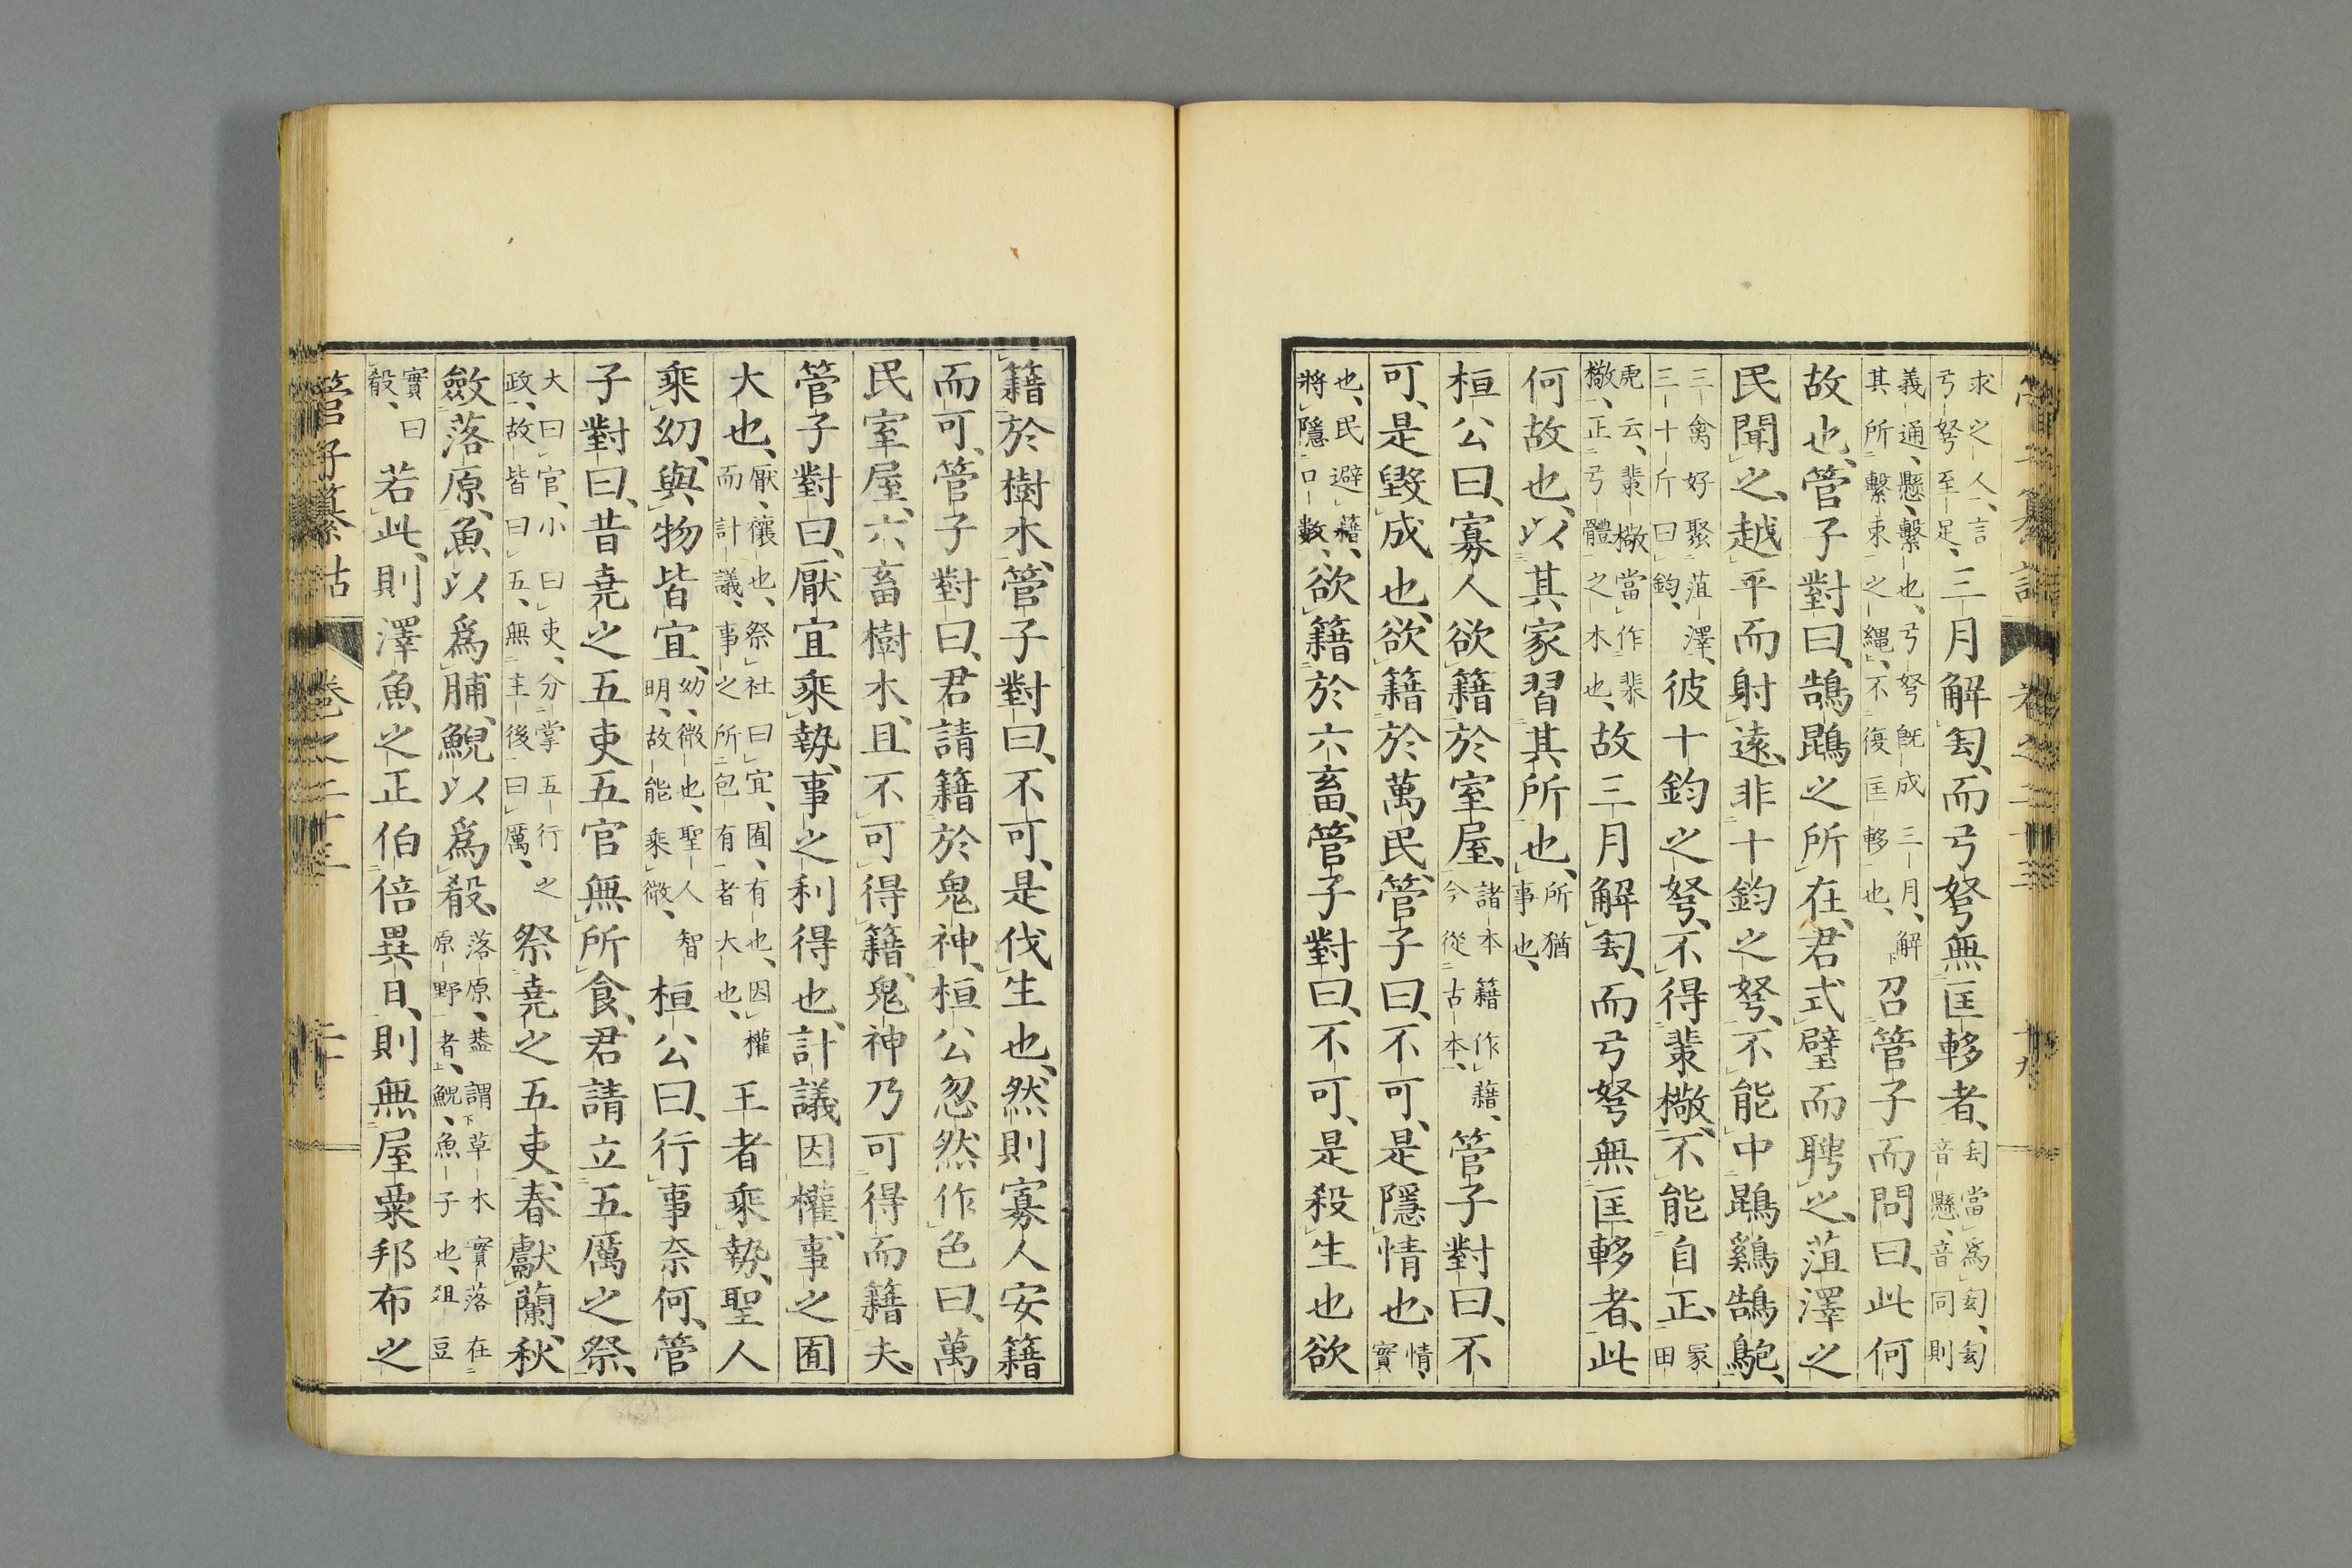 管子纂詁 卷之二十三 十九
求之人、言弓弩至足、三月解匋、而弓弩無匡𨋬者、匋當爲匋、匋音懸、音同則
義通、懸、繫也、弓弩既成三月、解其所繫束之繩、不復匡𨋬也、召管子而問曰、此何
故也、管子對曰、鵠鵾之所在、君式璧而聘之、菹澤之
民聞之、越平而射遠、非十鈞之弩、不能中鵾鷄鵠鴇、
三禽好聚菹澤、三十斤曰鈞、彼十鈞之弩、不得棐檄、不能自正、冢田
虎云、棐檄當作棐檄、正弓體之木也、故三月解匋、而弓弩無匡𨋬者、此
何故也、以其家習其所也、所猶事也、
桓公曰、寡人欲籍於室屋、諸本籍作藉、今從古本、管子對曰、不
可、是毀成也、欲籍於萬民、管子曰、不可、是隱情也、情、實
也、民避藉、將隱口數、欲籍於六畜、管子對曰、不可、是殺生也欲
籍於樹木、管子對曰、不可、是伐生也、然則寡人安籍
而可、管子對曰、君請籍於鬼神、桓公忽然作色曰、萬
民室屋、六畜樹木、且不可得籍、鬼神乃可得而籍夫、
管子對曰、厭宜乘勢、事之利得也、計議因權、事之囿
大也、厭、禳也、祭社曰宜、囿、有也、因權而計議、事之所包有者大也、王者乘勢、聖人
乘幼、與物皆宜、幼、微也、聖人智明、故能乘微、桓公曰、行事奈何、管
子對曰、昔堯之五吏五官無所食、君請立五厲之祭、
大曰官、小曰吏、分掌五行之政、故皆曰五、無主後曰厲、祭堯之五吏、春獻蘭、秋
斂落原、魚以爲脯、鯢以爲殽、落原、蓋謂草木實落在原野者、鯢、魚子也、俎豆
實曰殽、若此、則澤魚之正伯倍異日、則無屋粟邦布之
管子纂詁 卷之二十三 二十